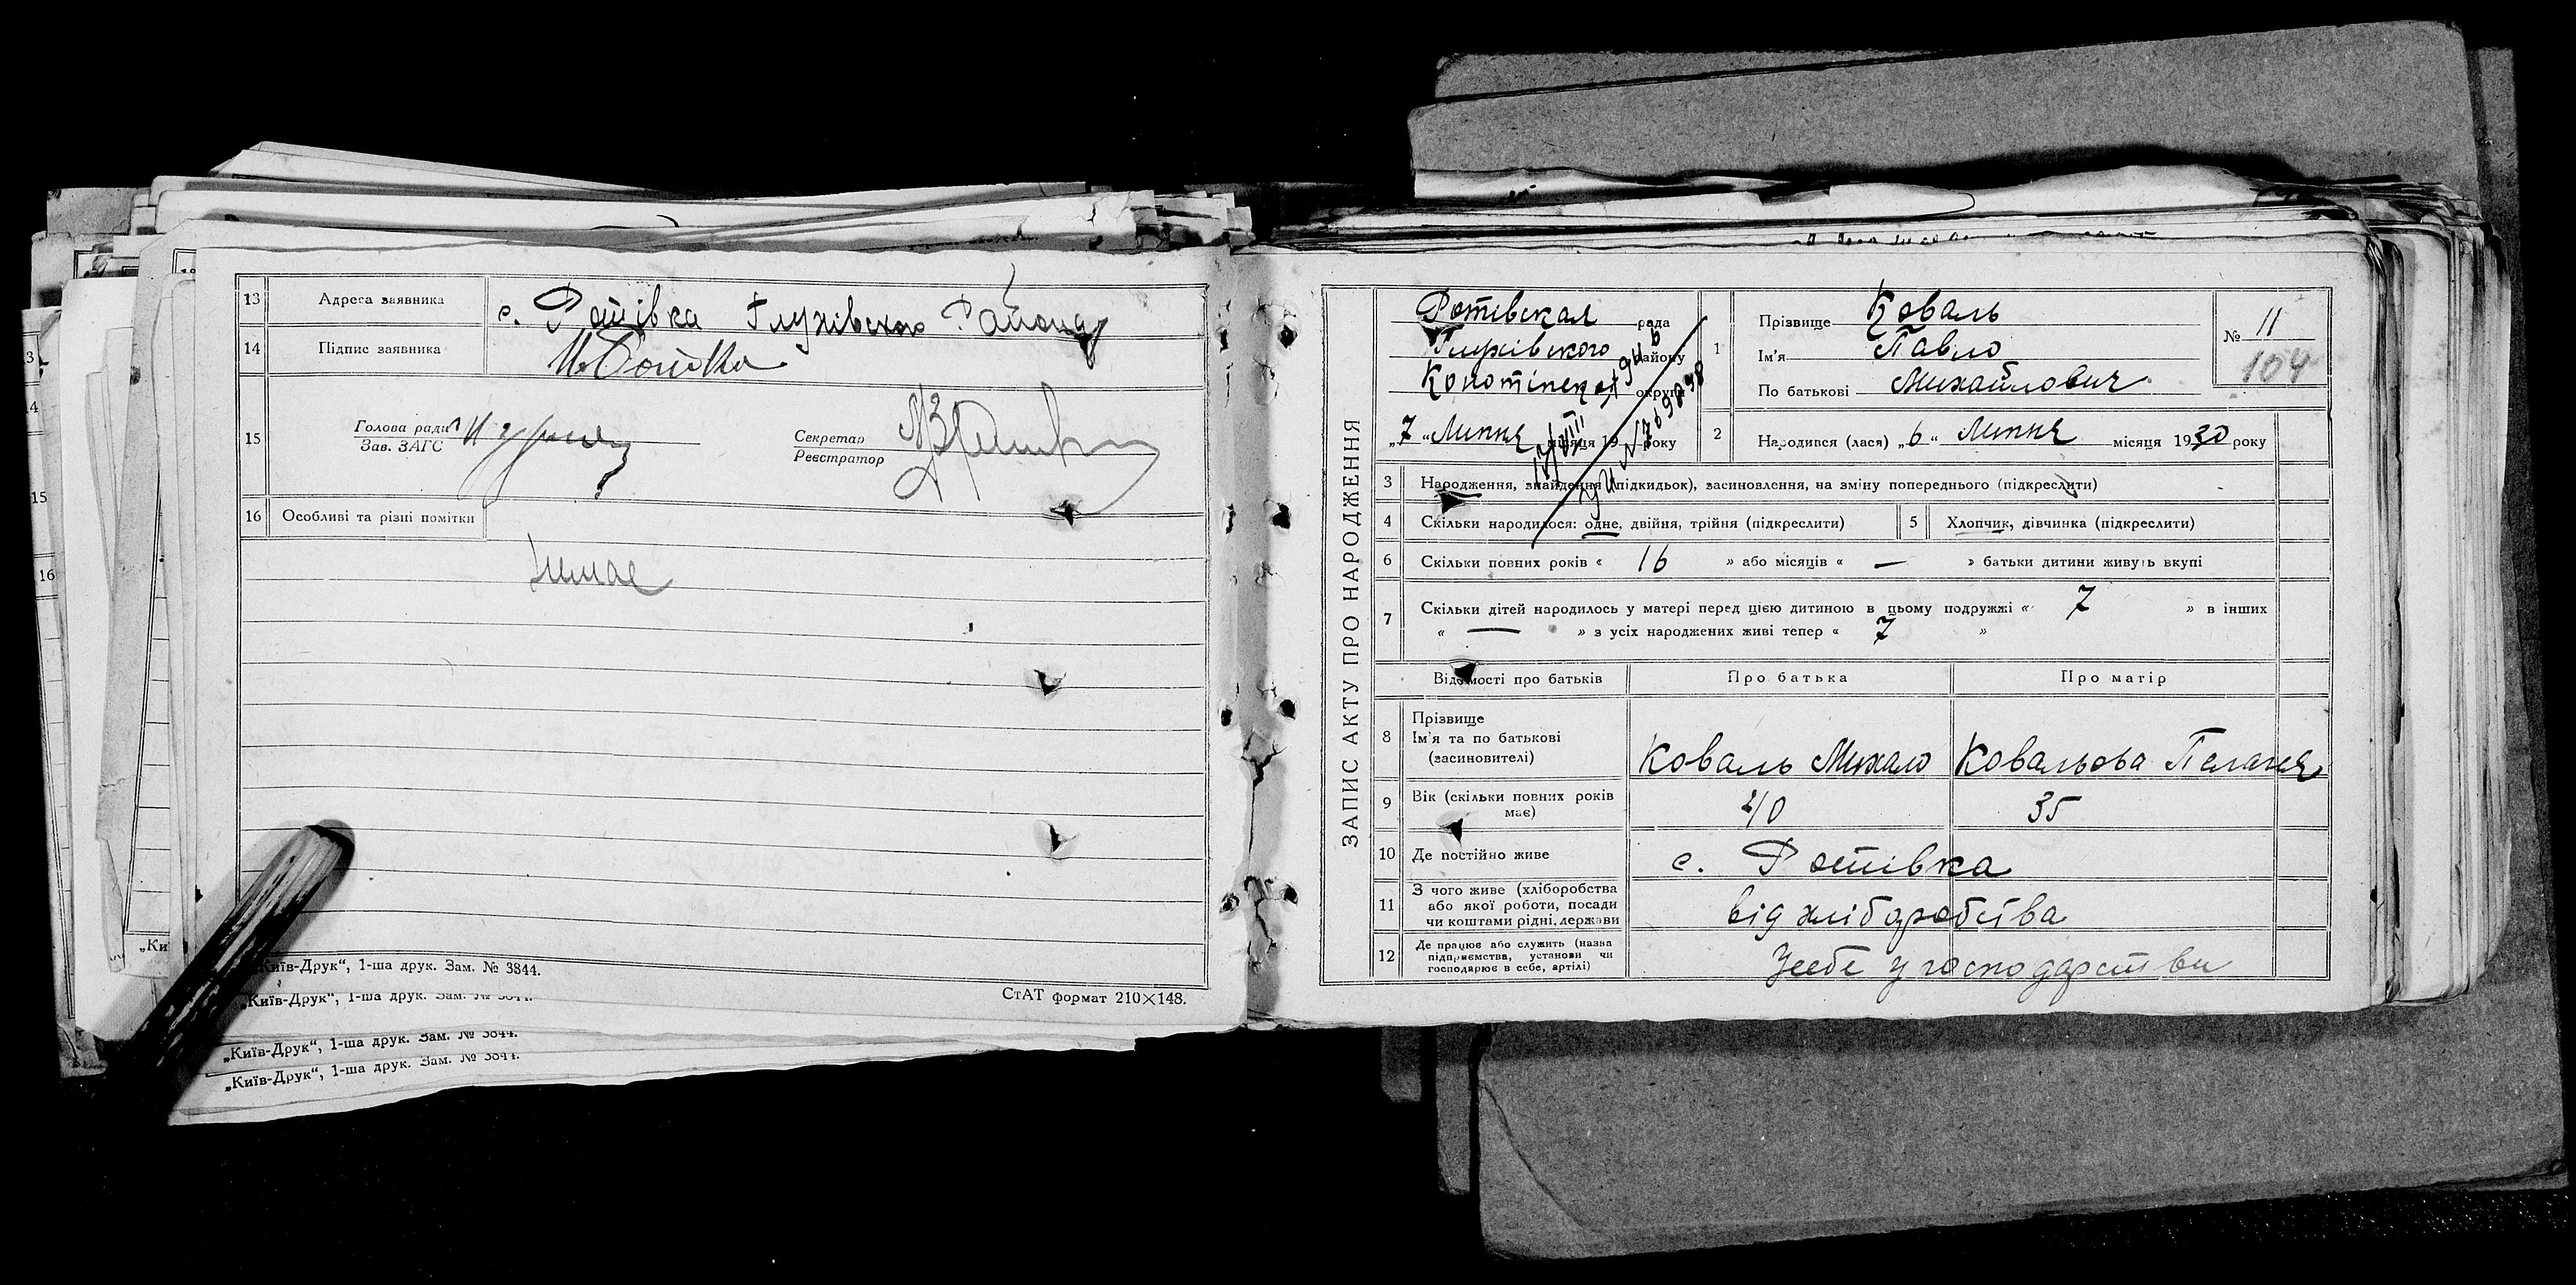 13 Адреса заявника с. Ротівка Глухівського Району
14 Підпис заявника
15 Голова ради
Зав. ЗАГС
Секретар
Реєстратор
16 Особливі та різні помітки
немає
„Київ-Друк“, 1-ша друк. Зам. № 3844.
СтАТ формат 210×148.
„Київ-Друк“, 1-ша друк. Зам. № 3844.
„Київ-Друк“, 1-ша друк. Зам. № 3844.
„Київ-Друк“, 1-ша друк. Зам. № 3844.
ЗАПИС АКТУ ПРО НАРОДЖЕННЯ
Ротівская рада
Глухівского району
округи
„7“ Липня місяця 19 року
1 Прізвище Коваль
Ім'я Павло
По батькові Михайлович
№ 11
104
2 Народився (лася) „6“ Липня місяця 1930 року
3 Народження, знайдення (підкидьок), засиновлення, на зміну попереднього (підкреслити)
4 Скільки народилося: одне, двійня, трійня (підкреслити)
5 Хлопчик, дівчинка (підкреслити)
6 Скільки повних років « 16 » або місяців « — » батьки дитини живуть вкупі
7 Скільки дітей народилось у матері перед цією дитиною в цьому подружжі « 7 » в інших
« — » з усіх народжених живі тепер « 7 »
Відомості про батьків Про батька Про матір
8 Прізвище
Ім'я та по батькові
(засиновителі)
Коваль Михало Ковальова Пелагея
9 Вік (скільки повних років має) 40 35
10 Де постійно живе с. Ротівка
11 З чого живе (хліборобства
або якої роботи, посади
чи коштами рідні, держави
від хліборобства
12 Де працює або служить (назва
підприємства, установи чи
господарює в себе, артілі)
Усебе у господарстви